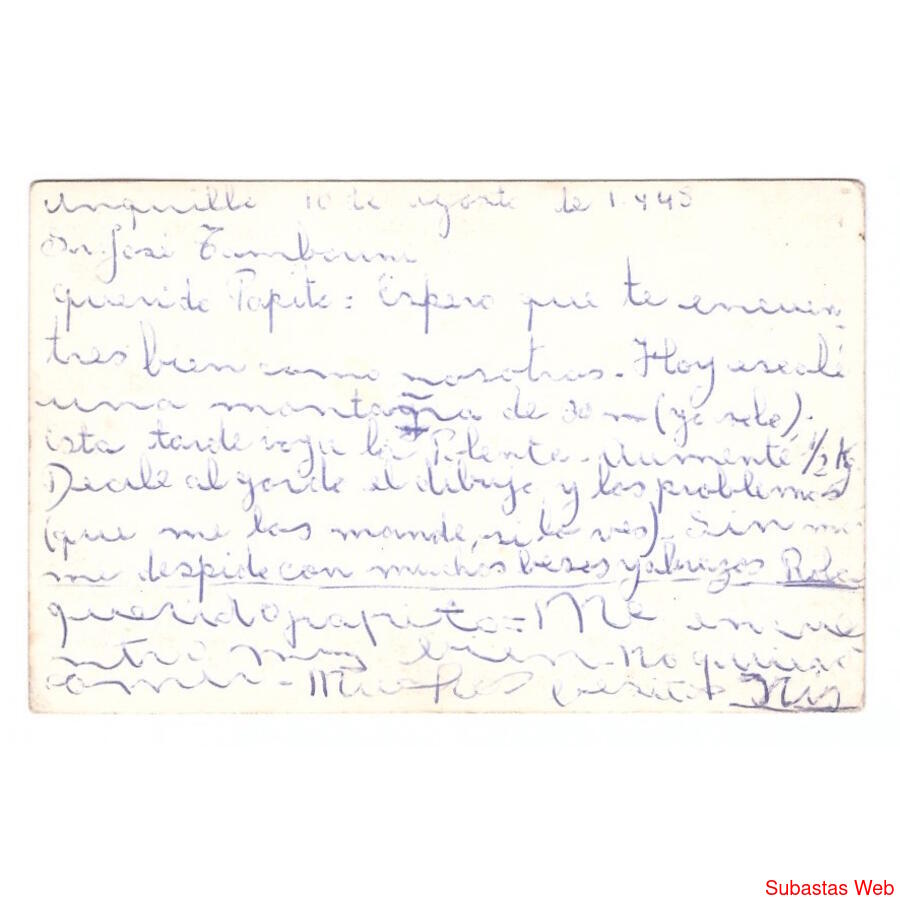 Unquillo 10 de agosto de 1.945
Sr. José Tambourini
Querido Papito = Espero que te encuen-
tres bien como nosotros. Hoy escalé
una montaña de 30 m (yo solo),
esta tarde voy a la Polenta. Aumenté 1/2 Kg
Decile al gordo el dibujo y los problemas
(que me los mande, si lo ves). Sin mas
me despido con muchos besos y abrazos
querido papito = Me encue
ntro muy bien. No quiero
comer. Muchos besitos
Subastas Web